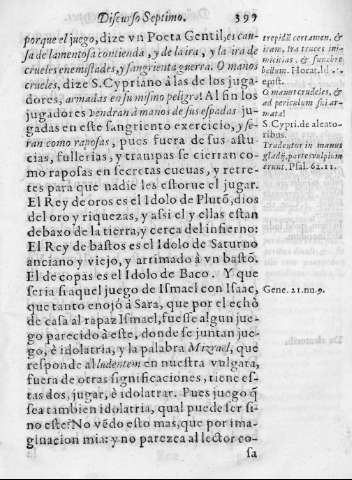 Discurso Septimo. 397
porque el juego, dize vn Poeta Gentil, es cau-
sa de lamentosa contienda, y de la ira, y la ira de
crueles enemistades, y sangrienta guerra. O manos
crueles, dize S. Cypriano à las de los juga-
dores, armadas en su mismo peligro! Al fin los
jugadores vendràn à manos de sus espadas ju-
gadas en este sangriento exercicio, y se-
ràn como raposas, pues fuera de sus astu-
cias, fullerias, y trampas se cierran co-
mo raposas en secretas cueuas, y retre-
tes para que nadie les estorue el jugar.
El Rey de oros es el Idolo de Plutõ, dios
del oro y riquezas, y assi el y ellas estan
debaxo de la tierra, y cerca del infierno:
El Rey de bastos es el Idolo de Saturno
anciano y viejo, y arrimado à vn bastõ.
El de copas es el Idolo de Baco. Y que
seria si aquel juego de Ismael con Isaac,
que tanto enojò à Sara, que por el echò
de casa al rapaz Ismael, fuesse algun jue-
go parecido à este, donde se juntan jue-
go, è idolatria, y la palabra Mizrael, que
responde al ludentem en nuestra vulgata,
fuera de otras significaciones, tiene es-
tas dos, jugar, è idolatrar. Pues juego q̃
sea tambien idolatria, qual puede ser si-
no este? No vẽdo esto mas, que por ima-
ginacion mia: y no parezca al lector co-
sa
trepidũ certamen, &
iram, Ira truces ini-
micitias, & funebre
bellum. Horat. lib. 1.
epist.
O manus crudeles, &
ad periculum sui ar-
matæ!
S. Cypri. de aleato-
ribus.
Tradentur in manus
gladij, partes vulpium
erunt. Psal. 62. 11.
Gene. 21. nu. 9.